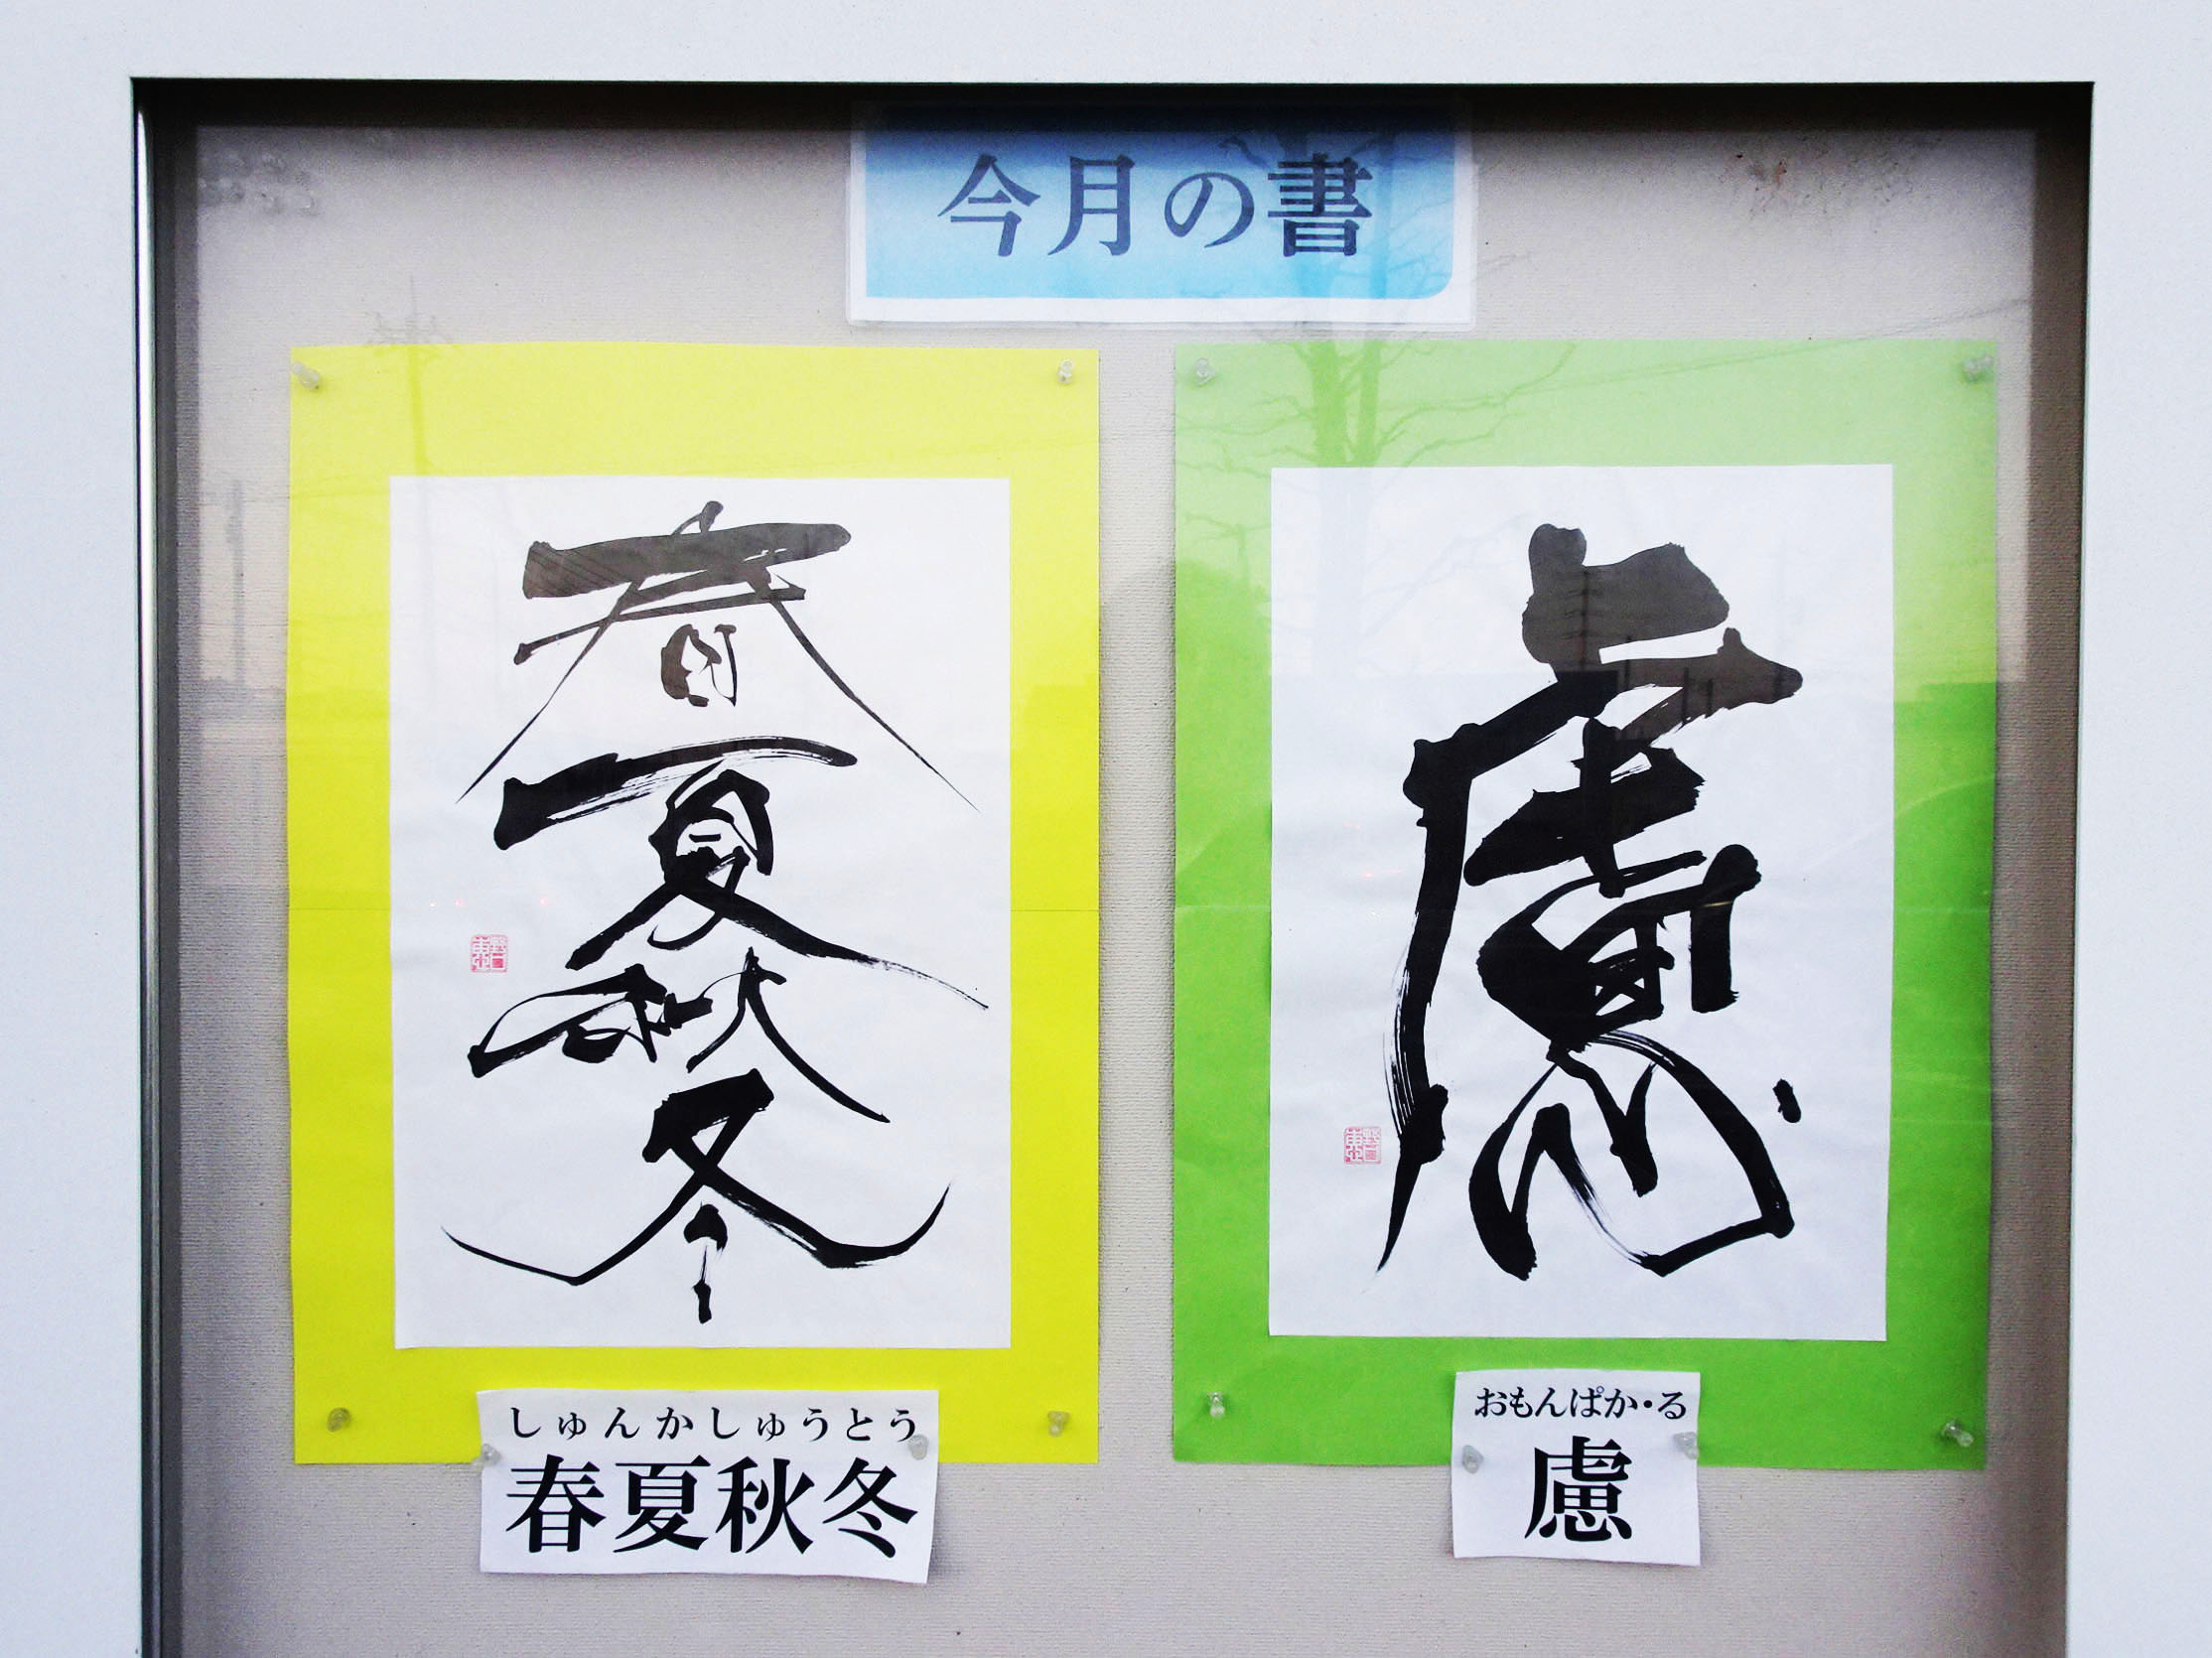 今月の書
春
夏
秋
冬
しゅんかしゅうとう
春夏秋冬
慮
おもんぱか・る
慮